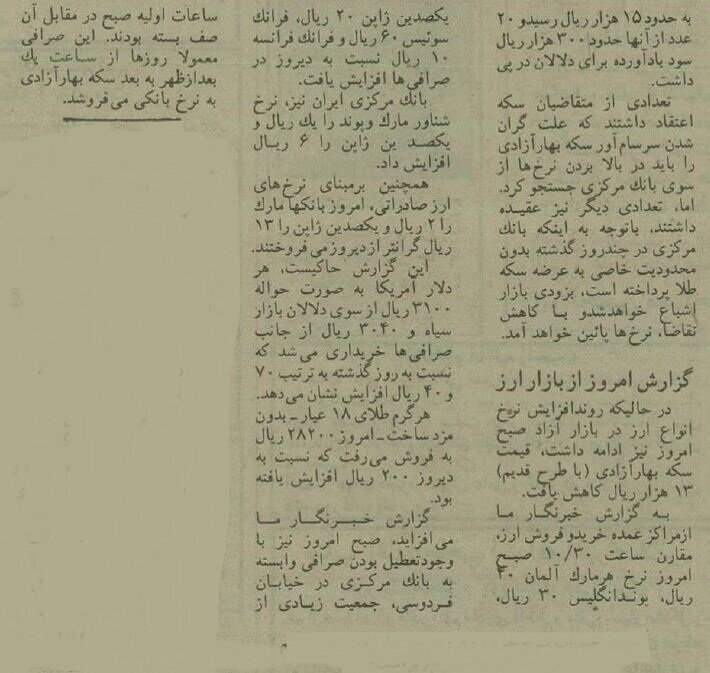 به حدود ۱۵ هزار ریال رسیدو ۲۰
عدد از آنها حدود ۳۰۰ هزار ریال
سود بادآورده برای دلالان در پی
داشت.
تعدادی از متقاضیان سکه
اعتقاد داشتند که علت گران
شدن سرسام‌آور سکه بهارآزادی
را باید در بالا بردن نرخ‌ها از
سوی بانك مرکزی جستجو کرد.
اما، تعدادی دیگر نیز عقیده
داشتند، باتوجه به اینکه بانك
مرکزی در چندروز گذشته بدون
محدودیت خاصی به عرضه سکه
طلا پرداخته است، بزودی بازار
اشباع خواهدشدو بـا کاهش
تقاضا، نرخ‌ها پائین خواهد آمد.
گزارش امروز از بازار ارز
در حالیکه روندافزایش نرخ
انواع ارز در بازار آزاد صبح
امروز نیز ادامه داشت، قیمت
سکه بهارآزادی (با طرح قدیم)
۱۳ هزار ریال کاهش یافت.
بـه گزارش خبرنگـار مـا
ازمراکز عمده خریدو فروش ارز،
مقارن ساعت ۱۰/۳۰ صبـح
امروز نرخ هرمارك آلمان ۴۰
ریال، پوندانگلیس ۳۰ ریال،
یکصدین ژاپن ۲۰ ریال، فرانك
سوئیس ۶۰ ریال و فرانك فرانسه
۱۰ ریال نسبت به دیروز در
صرافی‌ها افزایش یافت.
بانك مرکزی ایران نیز، نرخ
شناور مارك وپوند را یك ریال و
یکصـد ین ژاپن را ۶ ریـال
افزایش داد.
همچنین برمبنای نرخ‌های
ارز صادراتی، امروز بانکها مارك
را ۲ ریال و یکصدین ژاپن را ۱۳
ریال گرانتر از دیروز می‌فروختند.
این گزارش حاکیست، هر
دلار آمریکا به صورت حواله
۳۱۰۰ ریال از سوی دلالان بازار
سیاه و ۳۰۴۰ ریال از جانب
صرافی‌ها خریداری می‌شد که
نسبت به روز گذشته به ترتیب ۷۰
و ۴۰ ریال افزایش نشان می‌دهد.
هرگرم طلای ۱۸ عیار ـ بدون
مزد ساخت ـ امروز ۲۸۲۰۰ ریال
به فروش می‌رفت که نسبت به
دیروز ۲۰۰ ریال افزایش یافته
بود.
گزارش خبـرنگـار مـا
می‌افزاید، صبح امروز نیز با
وجودتعطیل بودن صرافی وابسته
به بانك مرکزی در خیابان
فـردوسی، جمعیت زیادی از
ساعات اولیه صبح در مقابل آن
صف بسته بودند. این صرافی
معمولا روزها از ساعت یك
بعدازظهر به بعد سکه بهارآزادی
به نرخ بانکی می‌فروشد.